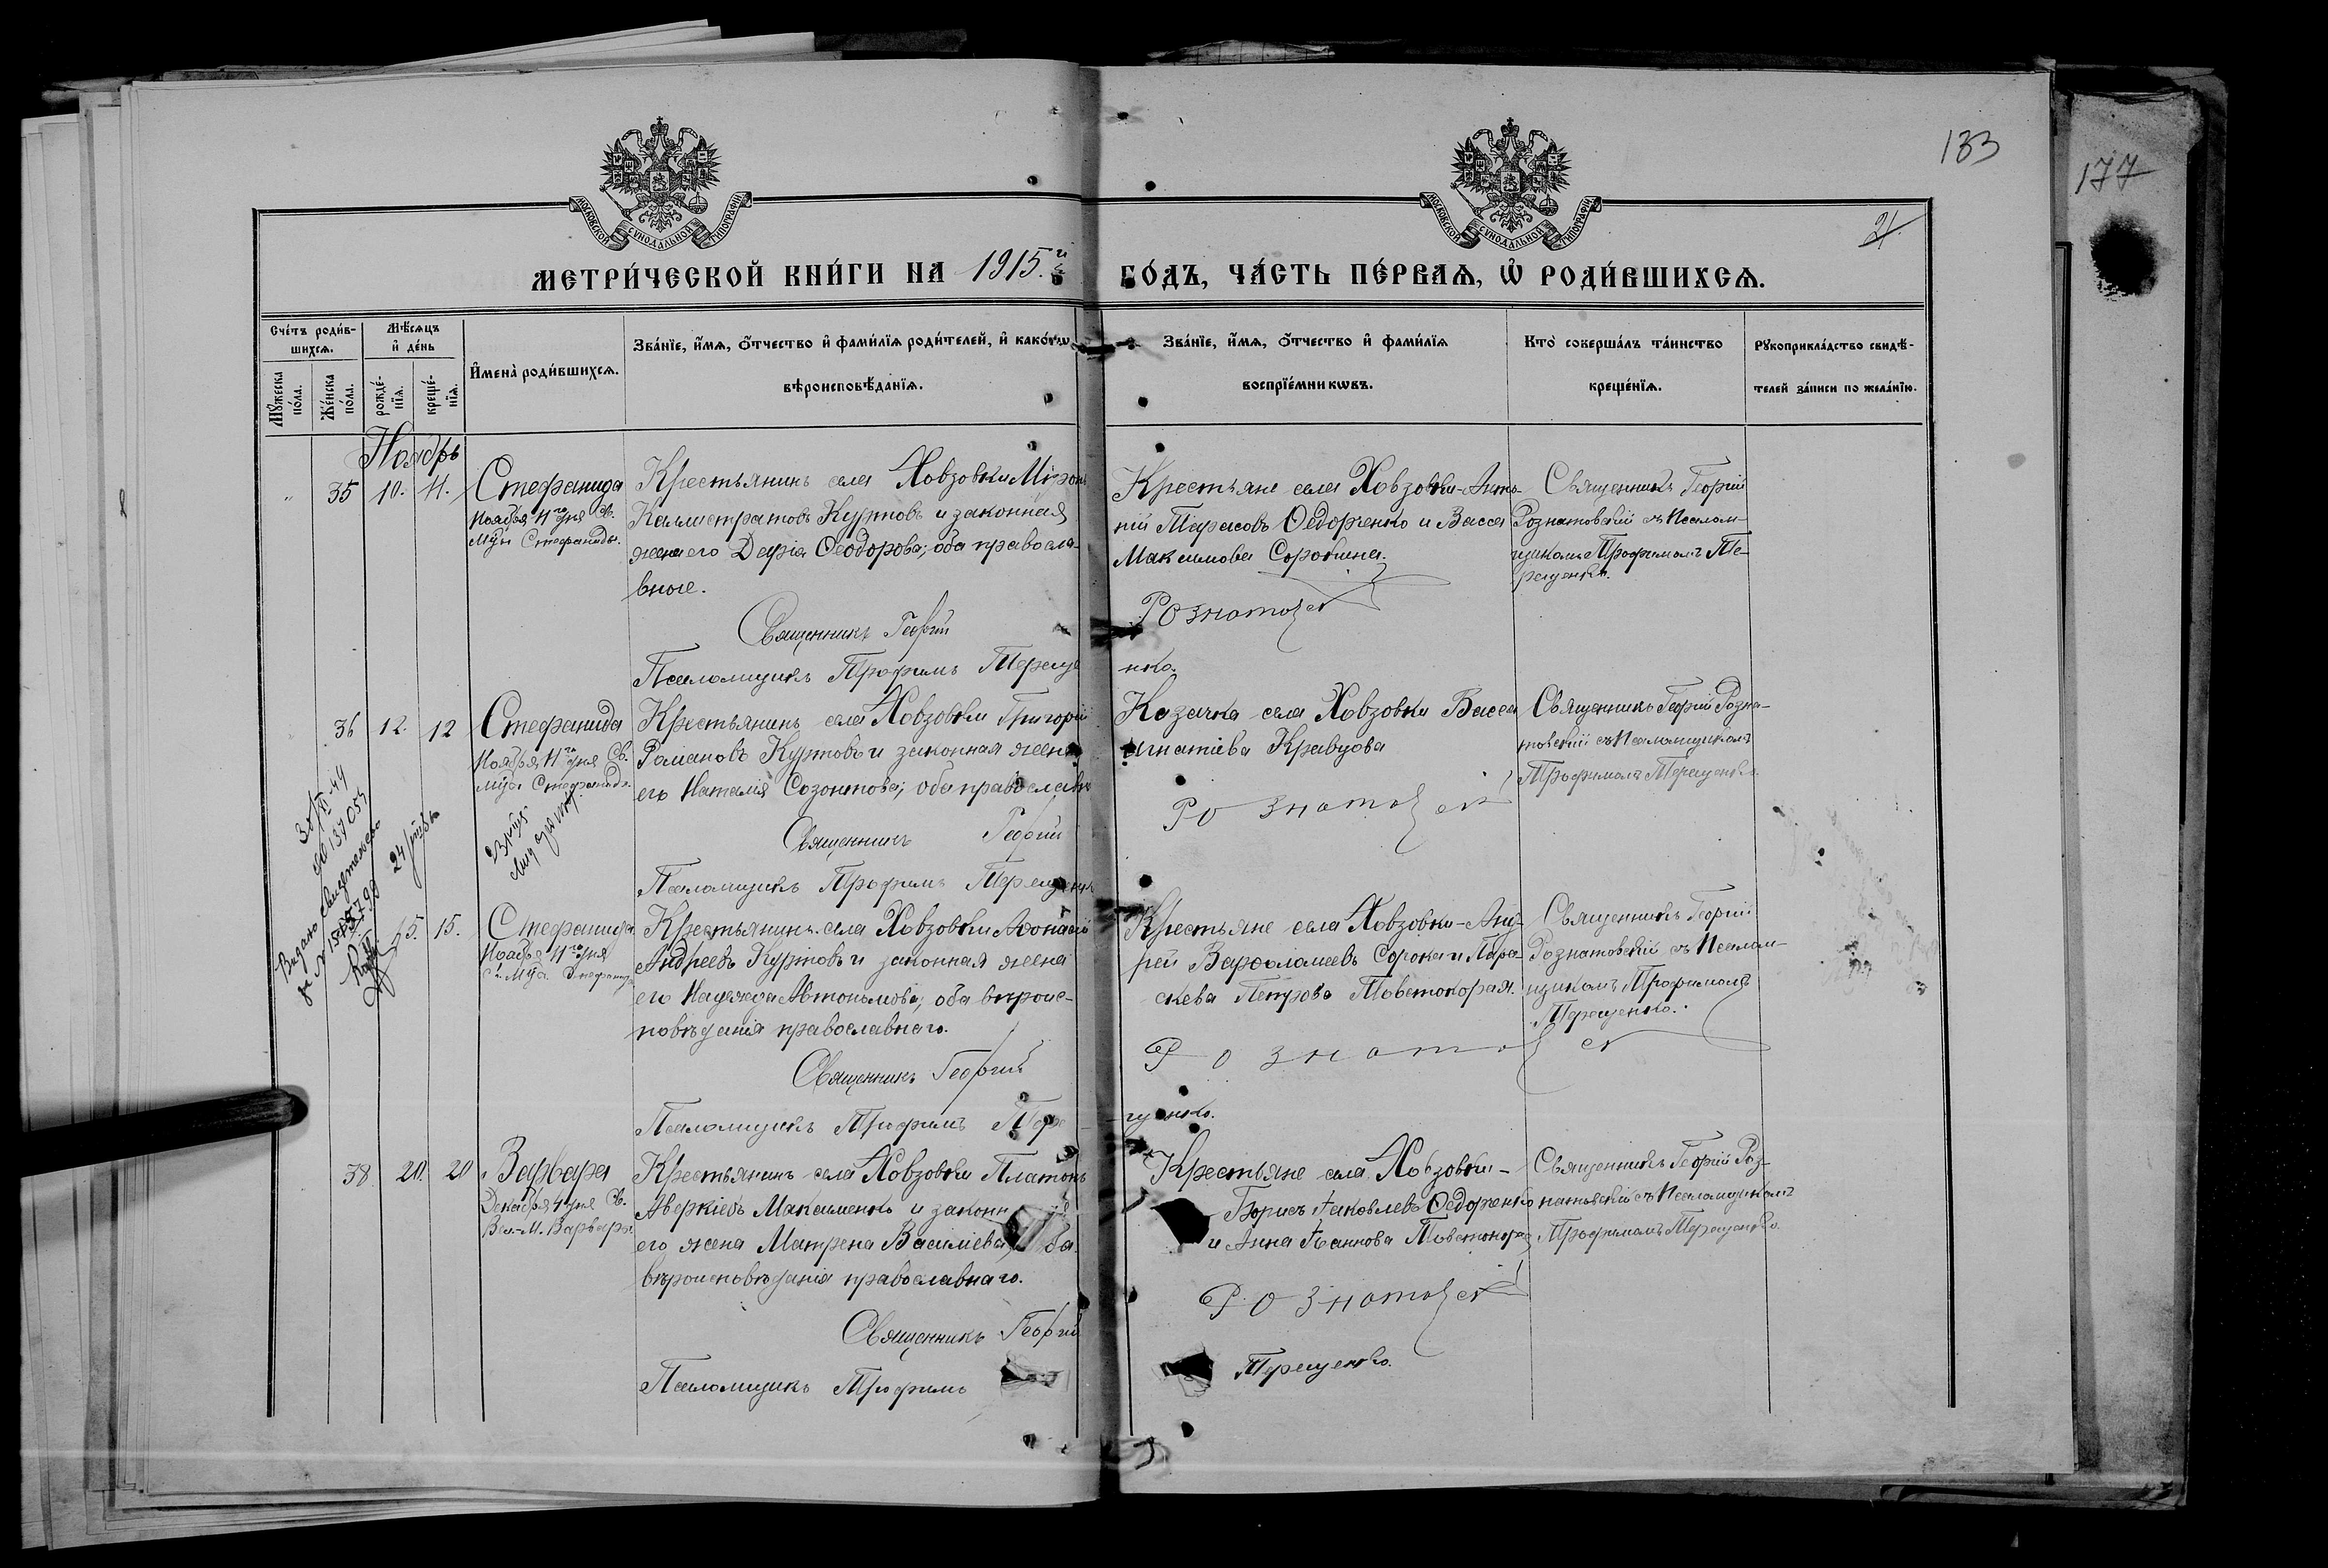 133
177
21.
МОСКОВСКОЙ СѴНОДАЛЬНОЙ ТИПОГРАФІИ
МОСКОВСКОЙ СѴНОДАЛЬНОЙ ТИПОГРАФІИ
МЕТРИ́ЧЕСКОЙ КНИ́ГИ НА 1915.й ГО́ДЪ, ЧА́СТЬ ПЕ́РВАѦ, Ѡ҆ РОДИ́ВШИХСѦ.
Сче́тъ роди́в-
шихсѧ.
Мꙋ́жеска по́ла.
Же́нска по́ла.
Мѣ́сѧцъ
и҆ де́нь
рожде́-
нїѧ.
креще́-
нїѧ.
И҆мена̀ роди́вшихсѧ.
Зва́нїе, и҆́мѧ, ѻ҆́тчество и҆ фами́лїѧ роди́телей, и҆ како́гѡ
вѣроисповѣ́данїѧ.
Зва́нїе, и҆́мѧ, ѻ҆́тчество и҆ фами́лїѧ
воспрїе́мникѡвъ.
Кто̀ соверша́лъ та́инство
креще́нїѧ.
Рꙋкоприкла́дство свидѣ́-
телей за́писи по жела́нїю.
Ноябрь
35 10. 11.
Стефанида
Ноября 11го дня Св.
Мцы Стефаниды.
Крестьянинъ села Ховзовки Миронъ
Каллистратовъ Куртовъ и законная
жена его Дарія Ѳеодорова; оба правосла-
вные.
Священникъ Георгій
Псаломщикъ Трофимъ Тереще
Крестьяне села Ховзовки-Анто-
ній Тарасовъ Ѳедорченко и Васса
Максимова Сорокина.
Рознатовск
нко.
Священникъ Георгій
Рознатовскій съ Псалом-
щикомъ Трофимомъ Те-
рещенко.
36 12. 12
Стефанида
Ноября 11го дня Св.
Мцы Стефаниды.
Крестьянинъ села Ховзовки Григорій
Романовъ Куртовъ и законная жена
его Наталія Созонтова; оба православн
Священникъ Георгій
Псаломщикъ Трофимъ Терещенко
Козачка села Ховзовки Васса
Игнатіева Кравцова
Рознатовск
Священникъ Георгій Розна-
товскій съ Псаломщикомъ
Трофимомъ Терещенко.
Видано свидетельство
24/
15. 15.
Стефанида
Ноября 11го дня
Св. Мцы Стефаниды
Крестьянинъ села Ховзовки Аѳонасій
Андреевъ Куртовъ и законная жена
его Надежда Автономова; оба вѣроис-
повѣданія православнаго.
Священникъ Георгій
Псаломщикъ Трофимъ Тере-
Крестьяне села Ховзовки-Анд-
рей Варѳоломеевъ Сорока и Пара-
скева Петрова Товстокорая.
Рознатовск
щенко.
Священникъ Георгій
Рознатовскій съ Псалом-
щикомъ Трофимомъ
Терещенко.
38 20. 20
Варвара
Декабря 4 дня Св.
Вел.-М. Варвары.
Крестьянинъ села Ховзовки Платонъ
Аверкіевъ Максименко и законн
его жена Матрена Василіева; оба
вѣроисповѣданія православнаго.
Священникъ Георгій
Псаломщикъ Трофимъ
Крестьяне села Ховзовки-
Борисъ Іаковлевъ Ѳедоренко
и Анна Іоаннова Товстокорая
Рознатовск
Терещенко.
Священникъ Георгій Роз-
натовскій съ Псаломщикомъ
Трофимомъ Терещенко.